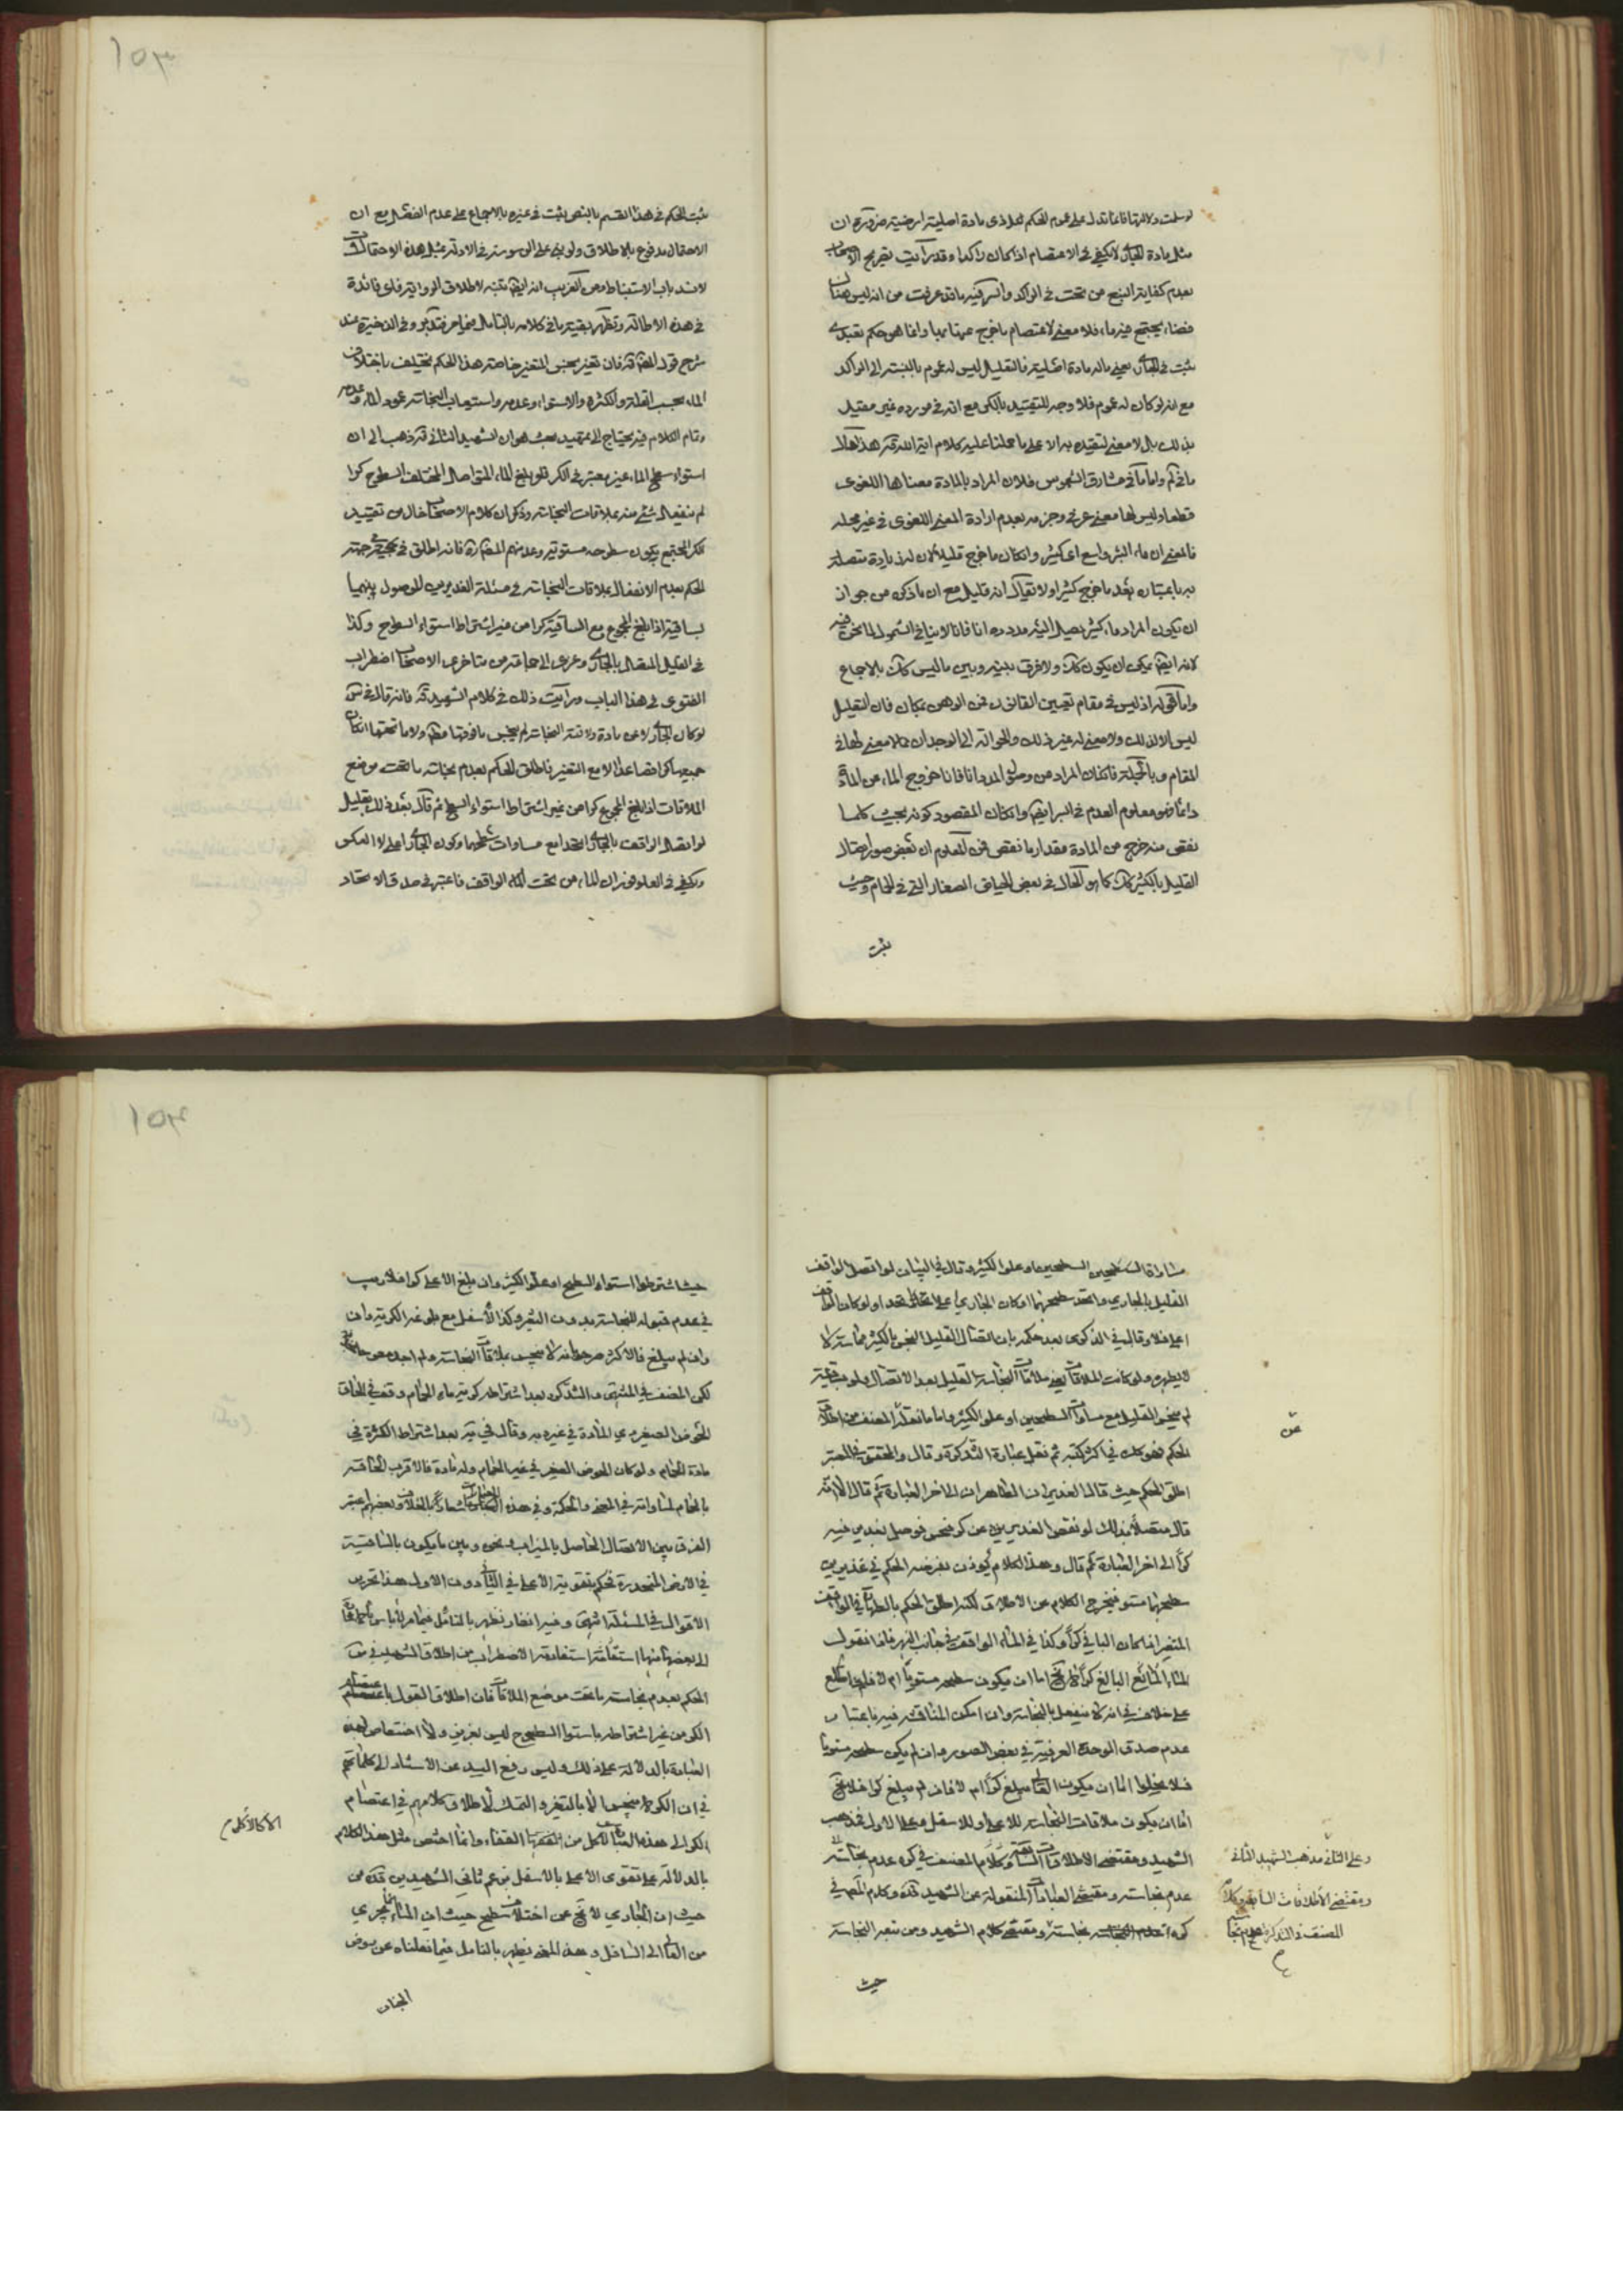 لو سلمت دلالتها فانما تدل على عموم الحكم لكل ذي مادة اصلية ارضية ضرورة ان
مثل مادة الجاري لا يكفي في الاعتصام اذا كان راكدا وقد رأيت تصريح الاصحاب
بعدم كفاية النبع من تحت في الراكد والسر فيه ما قد عرفت من انه ليس هناك
فضاء يجتمع فيه ماء فلا معنى لاعتصام ما خرج عنها بها وانما هو حكم تعبدي
ثبت في الجاري يعني ماله مادة اصلية فالتعليل ليس له عموم بالنسبة الى الراكد
مع انه لو كان له عموم فلا وجه للتقييد بالكر مع انه في مورده غير مقيد
بذلك بل لا معنى لتقييده به الا على ما حملنا عليه كلام اية الله قده هذا حال
ما في كم واما ما في مشارق الشموس فلان المراد بالمادة معناها اللغوي
قطعا وليس لها معنى عرفي وجزمه بعدم ارادة المعنى اللغوي في غير محله
فالمعنى ان ماء البئر واسع اي كثير وان كان ما خرج قليلا لان له زيادة متصلة
به باعتبارها يعد ما خرج كثيرا ولا يقال انه قليل مع ان ما ذكره من جواز
ان يكون المراد ماء كثير يصل اليه مدده انا فانا لا ينافي الشمول لما نحن فيه
لانه ايضا يمكن ان يكون كك ولا فرق بينه وبين ما ليس كك بالاجماع
واما قوله اذ ليس في مقام تعيين القانون فمن الوهن بمكان فان التعليل
ليس الا لذلك ولا معنى له غير ذلك والحوالة الى الوجدان مما لا معنى لها في
المقام وبالجملة فان كان المراد من وصول المدد انا فانا خروج الماء من المادة
دائما فهو معلوم العدم في البئر ايضا وان كان المقصود كونه بحيث كلما
نقص منه خرج من المادة مقدار ما نقص فمن المعلوم ان بعض صور اتصال
القليل بالكثير كك كما هو الحال في بعض الحياض الصغار التي في الحمام وحيث
ثبت
١٥٣
ثبت الحكم في هذا القسم بالنص يثبت في غيره بالاجماع على عدم الفصل مع ان
الاحتمال مدفوع بالاطلاق ولو بني على الوسوسة في الادلة بمثل هذه الاحتمالات
لانسد باب الاستنباط ومن الغريب انه ايضا تنبه لاطلاق الرواية فاي فائدة
في هذه الاطالة وتظهر بقية ما في كلامه بالتأمل فيما مر فتدبر وفي الذخيرة عند
شرح قول المصنف قده فان تغير نجس المتغير خاصة هذا الحكم يختلف باختلاف
الماء بحسب القلة والكثرة والاستواء وعدمه واستيعاب النجاسة عمود الماء وعدمه
وتمام الكلام فيه يحتاج الى تمهيد بحث هو ان الشهيد الثاني قده ذهب الى ان
استواء سطح الماء غير معتبر في الكر فلو بلغ الماء المتواصل المختلف السطوح كرا
لم ينفعل شيء منه بملاقات النجاسة وذكر ان كلام الاصحاب خال من تقييد
الكر المجتمع بكون سطوحه مستوية وعد منهم المصنف ره فانه اطلق في
الحكم بعدم الانفعال بملاقات النجاسة في مسئلة الغديرين الموصول بينهما
بساقية اذا بلغ المجموع مع الساقية كرا من غير اشتراط استواء السطوح وكذا
في القليل المتصل بالجاري وعزى الى جماعة من متاخري الاصحاب اضطراب
الفتوى في هذا الباب ورايت ذلك في كلام الشهيد قده فانه قال في س
لو كان الجاري لا عن مادة ولاقته النجاسة لم ينجس ما فوقها مطلقا ولا ما تحتها ان كان
جميعه كرا فصاعدا الا مع التغير فاطلق الحكم بعدم نجاسة ما تحت موضع
الملاقات اذا بلغ المجموع كرا من غير اشتراط استواء السطح ثم قال بعد ذلك بقليل
لو اتصل الواقف بالجاري اتحدا مع مساوات سطحهما وكون الجاري اعلى لا العكس
ويكفي في العلو فوران الماء من تحت الماء الواقف فاعتبر في صدق الاتحاد
مساواة السطحين وعلو الكثير وقال في البيان لو اتصل الواقف
القليل بالجاري واتحد سطحهما او كان الجاري اعلى اتحد ولو كان الواقف
اعلى فلا وقال في الذكرى بعد حكمه بان اتصال القليل النجس بالكثير مماسة لا
لا يطهره ولو كانت الملاقات يعني ملاقات النجاسة القليل بعد الاتصال ولو بساقية
لم ينجس القليل مع مساوات السطحين او علو الكثير واما ما نقله المصنف من اطلاق
عن
الحكم فهو كك في اكثر كتبه ثم نقل عبارة التذكرة وقال والمحقق في المعتبر
اطلق الحكم حيث قال الغديران الطاهران الى اخر العبارة ثم قال الا انه
قال متصلا بذلك لو نقص الغدير عن كر فنجس فوصل بغدير فيه
كرا الى اخر العبارة ثم قال وهذا الكلام يؤذن بفرضه الحكم في غديرين
سطحهما مستو فيخرج الكلام عن الاطلاق لكنه اطلق الحكم بالطهارة في الواقف
المتغير اذا كان الباقي كرا وكذا في الماء الواقف في جانب النهر فاذا نقول
الماء المايع البالغ كرا لا يخ اما ان يكون سطحه مستويا ام لا فلم اطلع
على خلاف في انه لا ينفعل بالنجاسة وان امكن المناقشة فيه باعتبار
عدم صدق الوحدة العرفية في بعض الصور وان لم يكن سطحه مستويا
فلا يخلوا اما ان يكون العالي يبلغ كرا ام لا فان لم يبلغ كرا فلا يخ
اما ان يكون ملاقات النجاسة للاعلى او للاسفل فعلى الاول فمذهب
الشهيد ومقتضى الاطلاقات السابقة وكلام المصنف في كره عدم نجاسته
وعلى الثاني مذهب الشهيد الثاني
ومقتضى الاطلاقات السابقة وكلام
المصنف في التذكرة عدم نجاسته
عدم نجاسته ومقتضى العبارات المنقولة عن الشهيد قده وكلام المصنف في
كره نجاسته ومقتضى كلام الشهيد ومن تبعه النجاسة
حيث
١٥٤
حيث اشترطوا استواء السطح او علو الكثير وان بلغ الاعلى كرا فلا ريب
في عدم قبوله للنجاسة بدون التغير وكذا الاسفل مع بلوغه الكرية وان
وان لم يبلغ فالاكثر صرحوا بانه لا ينجس بملاقات النجاسة ولم اجد مصرحا بخلافه
لكن المصنف في المنتهى والتذكره بعد اشتراط كرية ماء الحمام وقف في الحاق
الحوض الصغير ذي المادة في غيره به وقال في ية بعد اشتراط الكثرة في
مادة الحمام ولو كان الحوض الصغير في غير الحمام وله مادة فالاقرب الحاقه
بالحمام لمساواته في المعنى والحكمة وفي هذه العبارات اشعار بالخلاف وبعضهم اعتبر
الفرق بين الاتصال الحاصل بالميزاب ونحوه وبين ما يكون بالساقية
في الارض المنحدرة فحكم بتقوية الاعلى في الثاني دون الاول هذا تحرير
الاقوال في المسئلة انتهى وفيه انظار تظهر بالتامل فيما مر ولا باس بالاشارة
الى بعضها منها استقامة استفادة الاضطراب من اطلاق الشهيد في س
الحكم بعدم نجاسة ما تحت موضع الملاقات فان اطلاق القول باعتصام
الكر من غير اشتراطه باستواء السطوح ليس بغريب ولا اختصاص لهذه
العبارة بالدلالة على ذلك وليس رفع اليد عن الاستناد الى كلماتهم
في ان الكر لا ينجس الا بالتغير والتمسك لاطلاق كلامهم في اعتصام
الكر الى هذه العبارة الا كالاكل من القفاء وانما اختص مثل هذا الكلام
الا كالاكل من
بالدلالة على تقوى الاعلى بالاسفل بزعم ثاني الشهيدين قده من
حيث ان الجاري لا يخ عن اختلاف سطح حيث ان الماء انما يجري
من العالي الى السافل وهذا المعنى يظهر بالتامل فيما نقلناه عن روض
الجنان